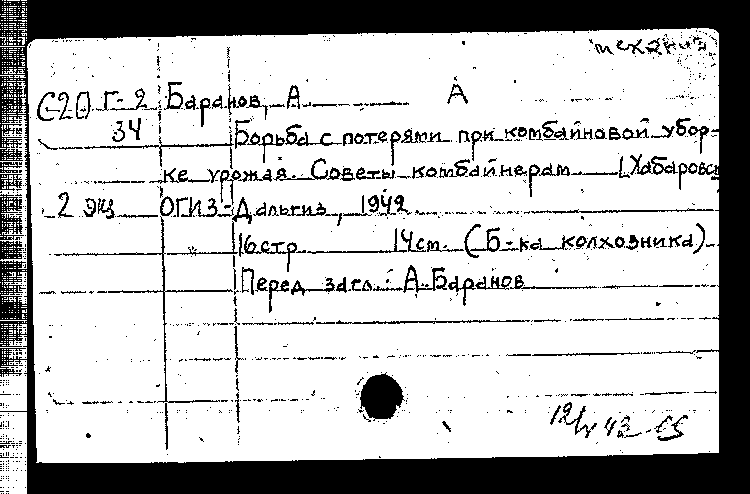 механиз
С20 Г-2 Баранов, А. А
34 Борьба с потерями при комбайновой убор-
ке урожая. Советы комбайнерам. [Хабаровск
2 экз ОГИЗ-Дальгиз, 1942
16стр 14см. (Б-ка колхозника)
Перед загл.: А. Баранов
12/V 43